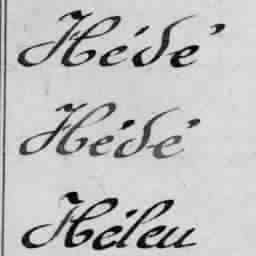 Hédé
Hédé
Héleu